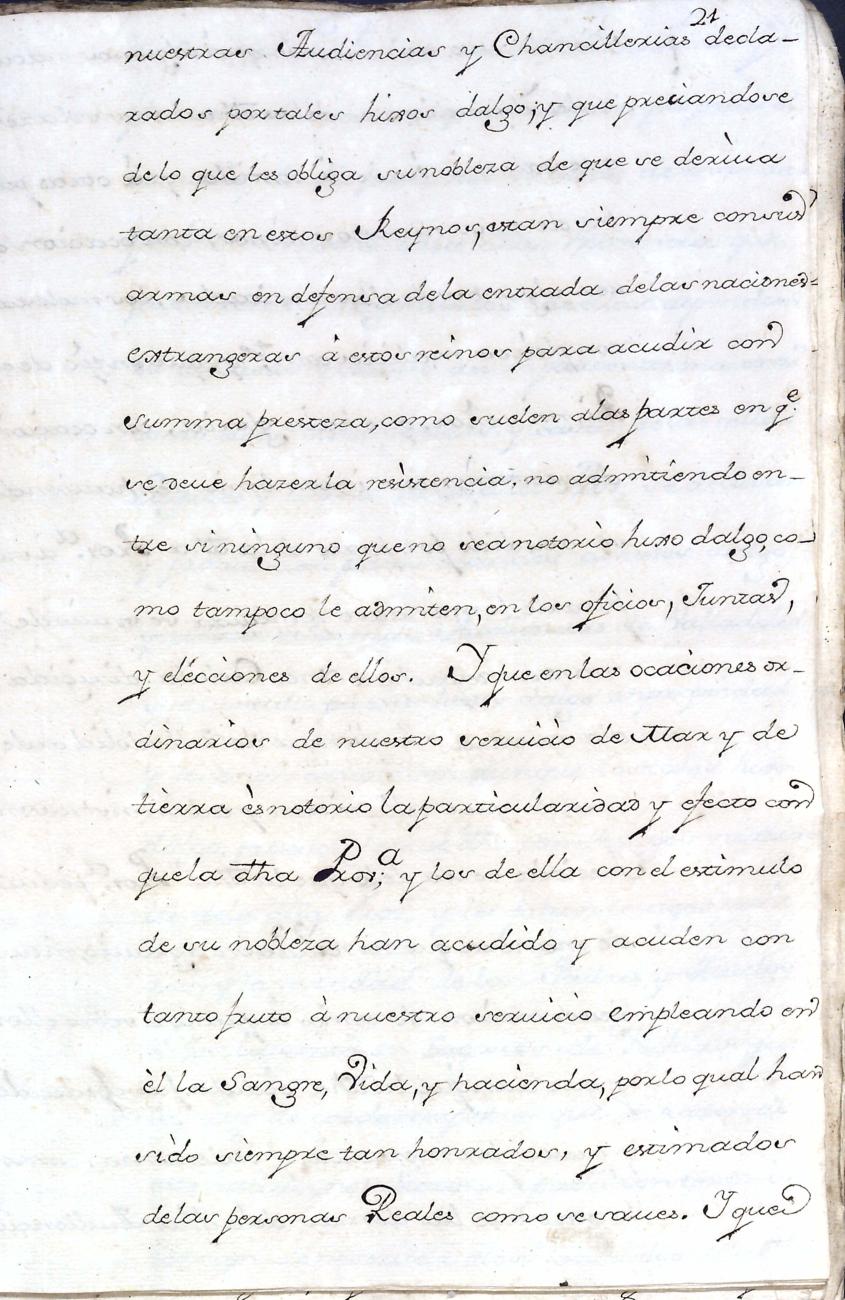 21
nuestras Audiencias y Chancillerias decla-
rados por tales hixos dalgo; y que preciandose
de lo que les obliga su nobleza de que se deriua
tanta en estos Reynos, estan siempre con sus
armas en defensa de la entrada de las naciones
extrangeras à estos reinos para acudir con
summa presteza, como suelen a las partes en q.e
se deue hazer la resistencia, no admitiendo en-
tre si ninguno que no sea notorio hixo dalgo, co-
mo tampoco le admiten, en los oficios, Juntas,
y elécciones de ellos. Y que en las ocaciones or-
dinarios de nuestro seruicio de Mar y de
tierra ès notorio la particularidad y efecto con
que la dha Prov.a; y los de ella con el estimulo
de su nobleza han acudido y acuden con
tanto fruto à nuestro seruicio empleando en
èl la Sangre, Vida, y hacienda, por lo qual han
sido siempre tan honrados, y estimados
de las personas Reales como se saues. Y que